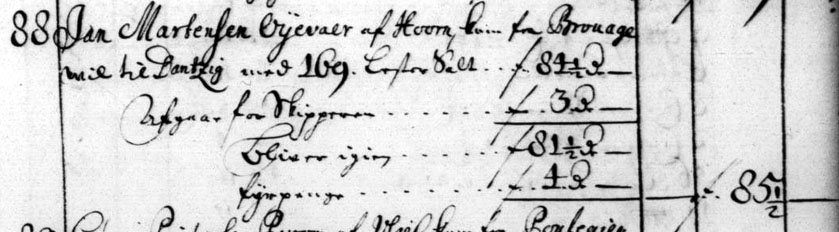 88 Jan Martensen Oyevaer af Hoorn, kom fra Brouage
will til Dantzig med 169. Lester Salt . . 84½ D —
Afgaar for Skipperen . . . . . . 3 D —
bliver igien . . . . . 81½ D —
fyrpenge . . . . . . 4 D — 85½
af kom fra